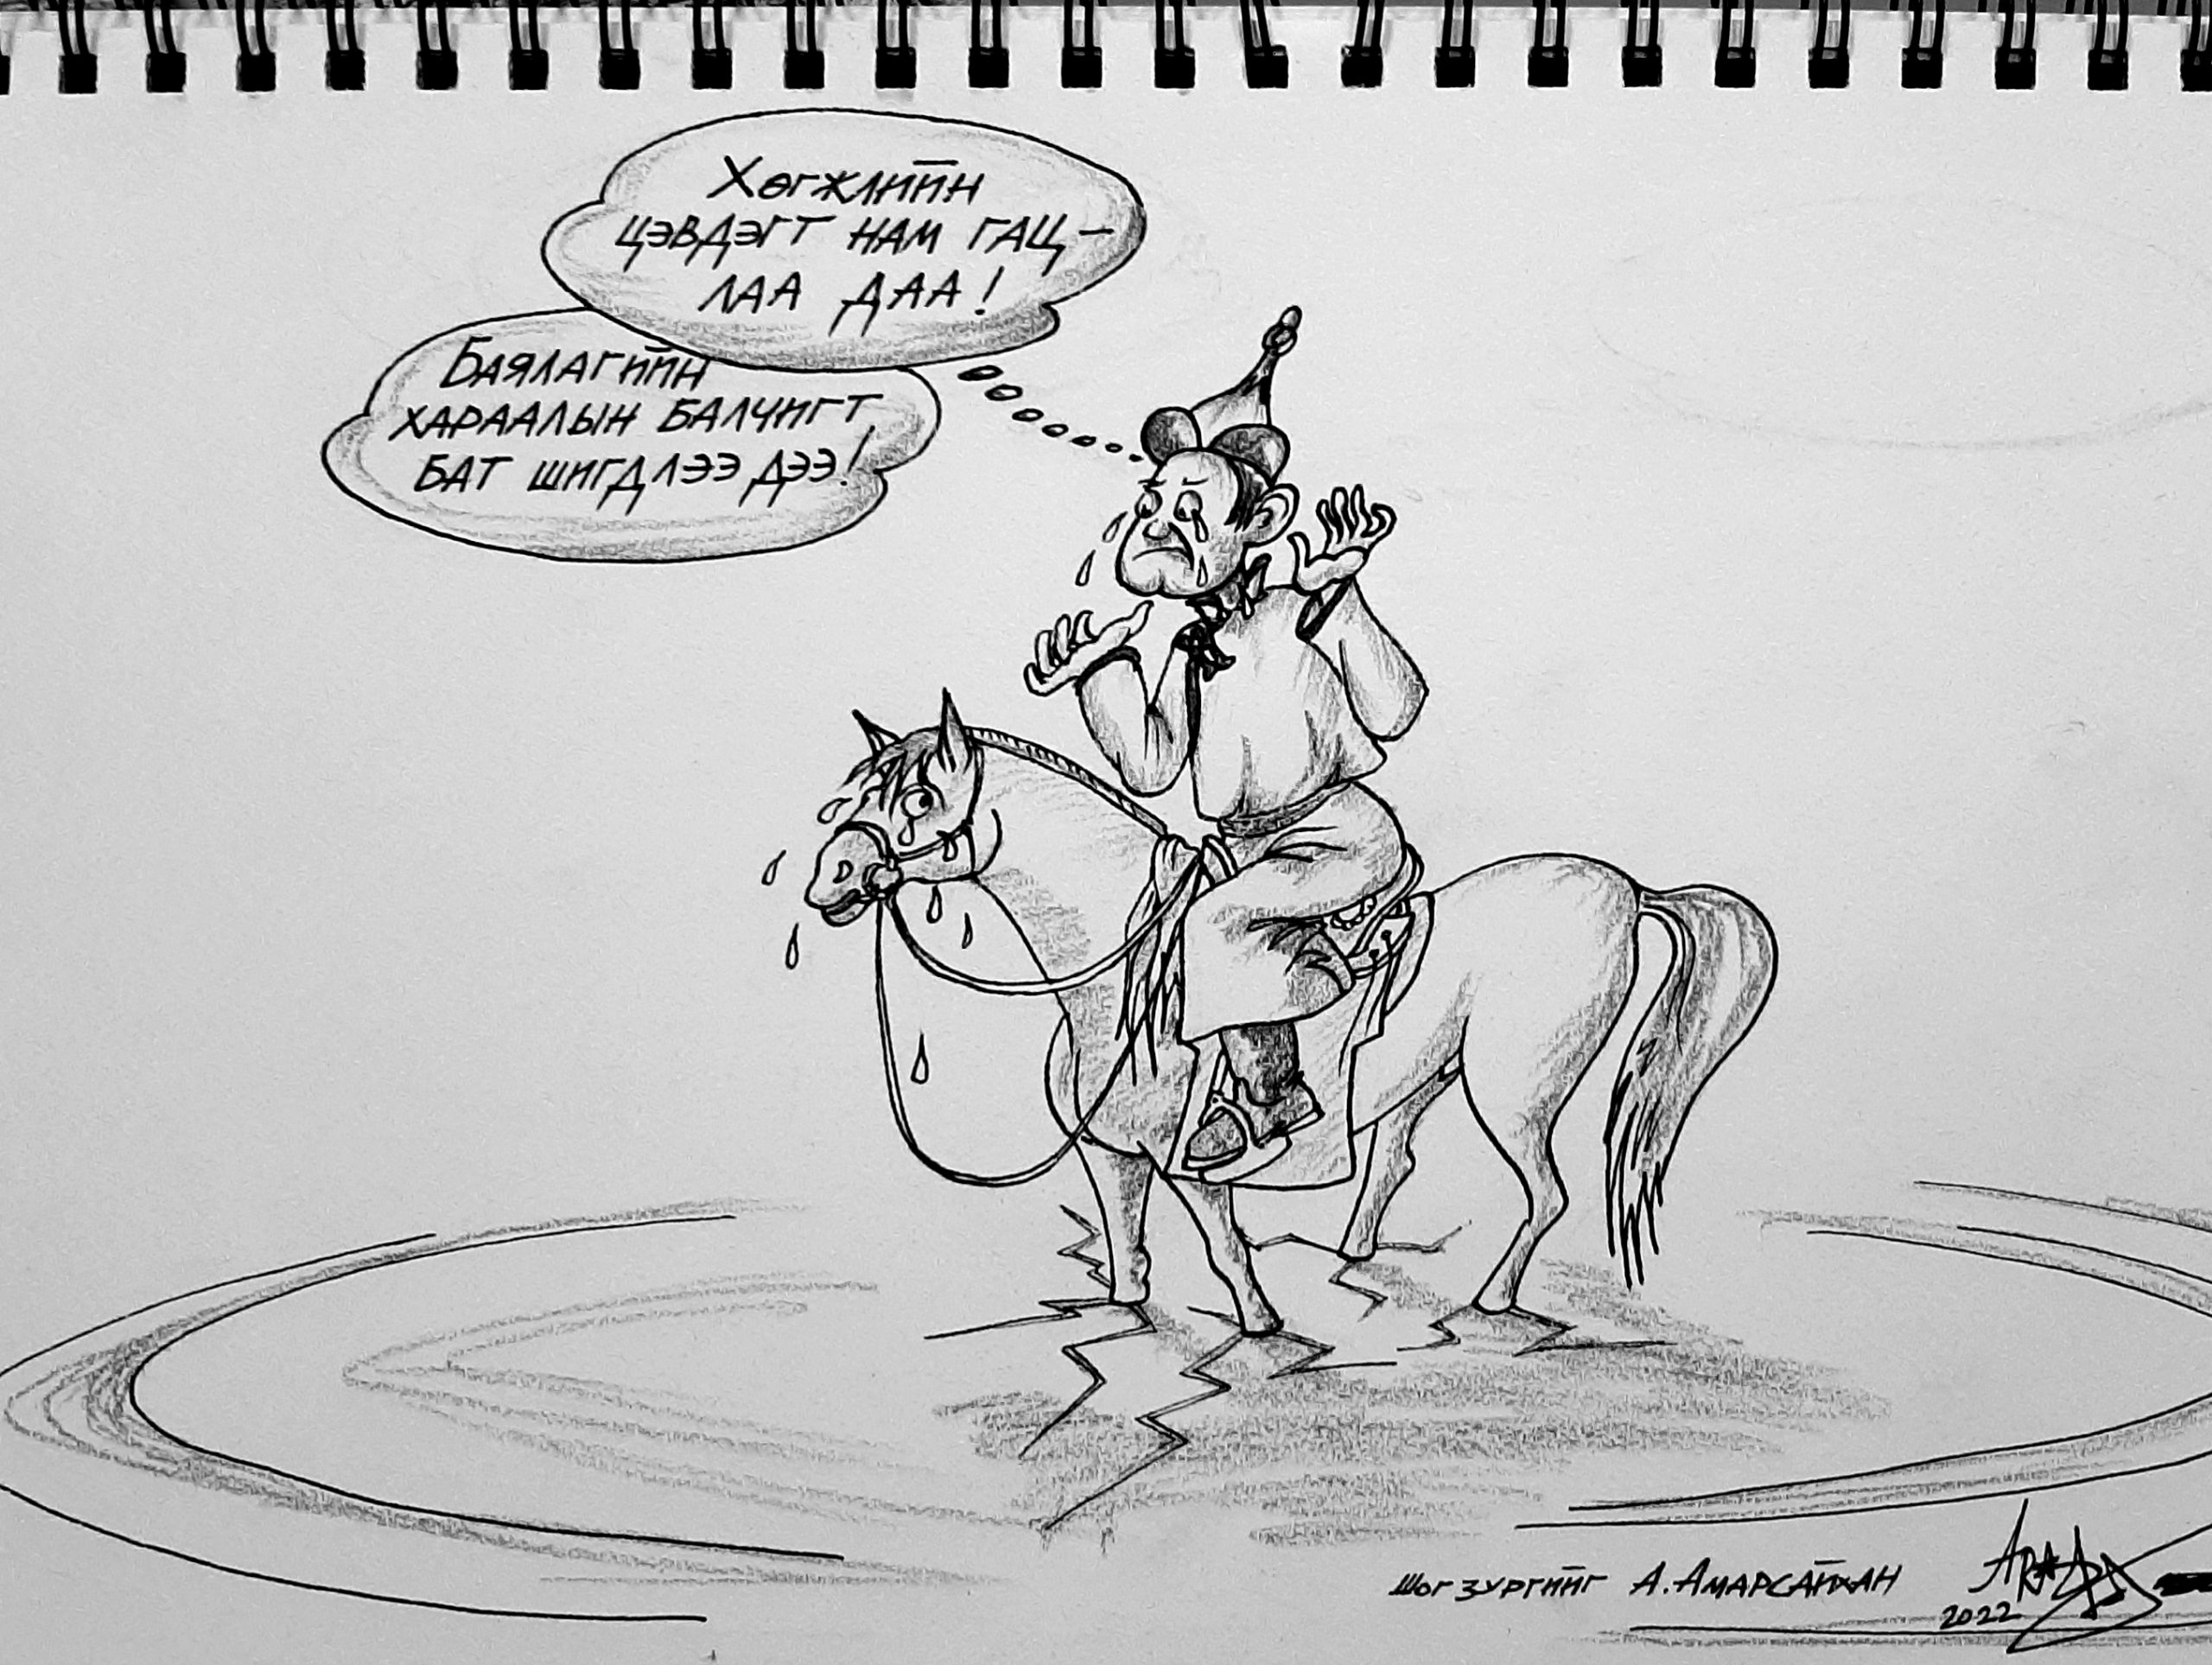 Хөгжлийн
цэвдэгт нам гац-
лаа даа!
Баялагийн
хараалын балчигт
бат шигдлээ дээ!
Шог зургийг А. Амарсайхан
2022